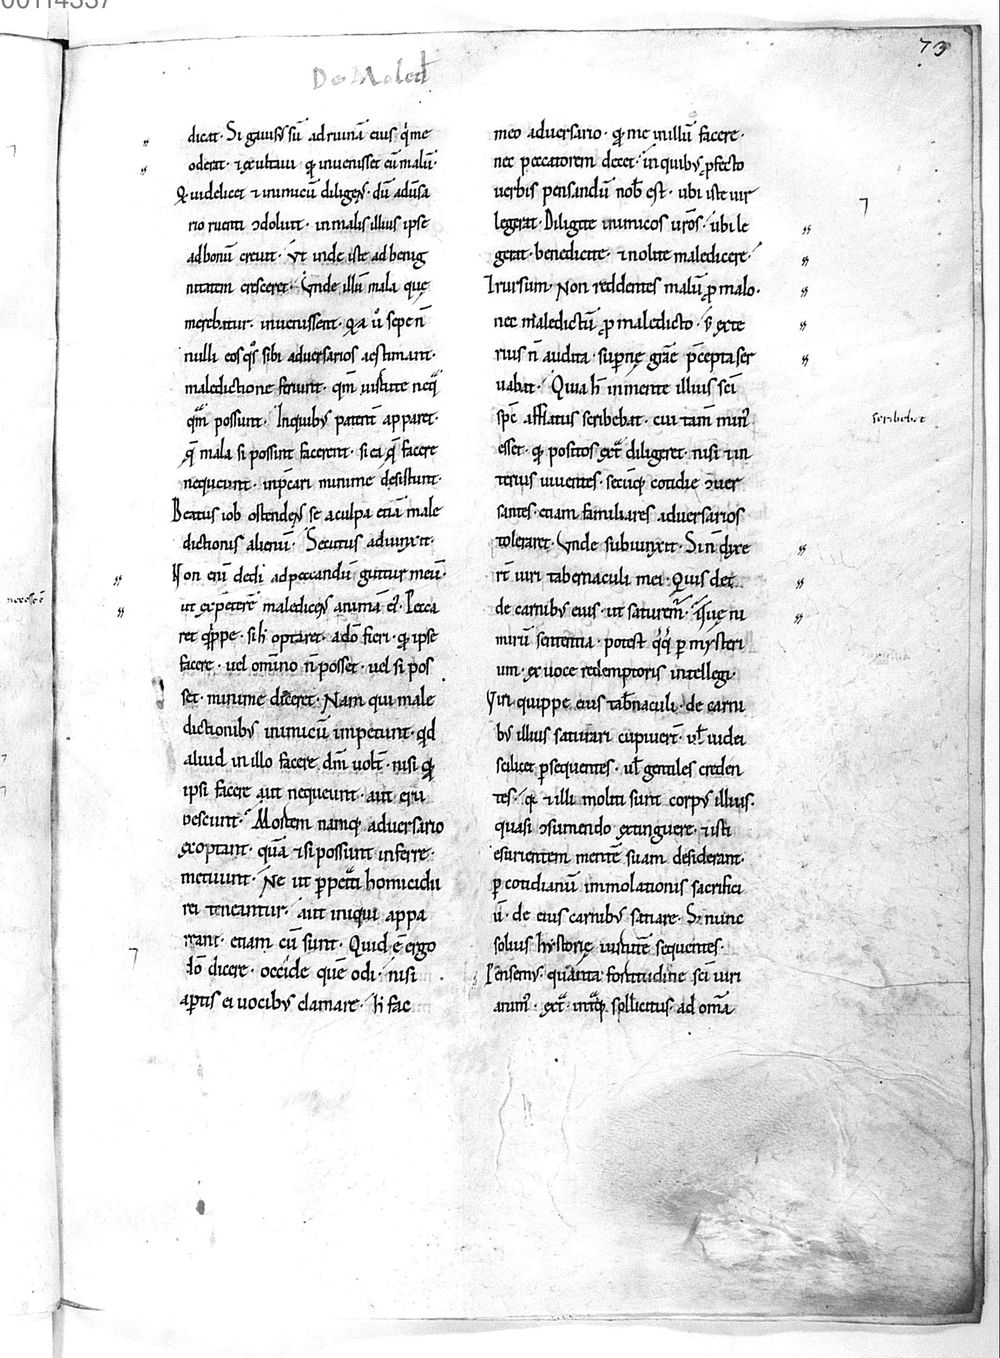 00114337
73
De Maled
dicat· Si gauisꝰ sū ad ruinā eius q̇ me
oderat· ⁊ exultaui ꝙ inuenisset eū malū·
Q uidelicet ⁊ inimicū diligenſ· dū aduersa
rio ruenti ꝯdoluit· in malis illius ipse
ad bonū creuit· Vt inde iste ad benig
nitatem cresceret· Vnde illū mala quę
merebatur· inuenissent· Qa ů sepe n̄
nulli eos qͦs sibi aduersarios aestimant·
maledictione feriunt· qm̄ uirtute neqͣ
qͣm possunt· In quibꝰ patent̄ apparet·
q̄ mala si possint facerent· si ea q̄ facere
nequeunt· inp̄cari minime desistunt·
Beatus iob ostendenſ se a culpa etiā male
dictionis alienū· Secutus adiunxit·
Non eni dedi ad peccandū guttur meū·
ut expeterē maledicenſ animā eiꝰ· Pecca
ret q̇ppe· si h̄ optaret· a dō fieri· ꝙ ipse
facere· uel om̄ino n̄ posset· uel si pos
set· minime diceret· Nam qui male
dictionibꝰ inimicū impetunt· qd
aliud in illo facere dm̄ uolt̄· nisi ꝙ
ipsi facere aut nequeunt· aut eru
bescunt· Mortem namq; aduersario
exoptant· quā ⁊ si possunt inferre·
metuunt· Ne ut p̱petͣti homicidii
rei teneantur· aut iniqui appa
reant· etiam cū sunt· Quid ē ergo
dō dicere· occide quē odi· nisi
aptis ei uocibꝰ clamare· h̄ fac
meo aduersario· ꝙ me in illū facere·
nec peccatorem decet· in quibꝰ p̱fecto
uerbis pensandū nob̄ est· ubi iste uir
legerat· Diligite inimicos uros̄· ubi le
gerat· benedicite· ⁊ nolite maledicere·
Irursum· Non reddentes malū p̱ malo·
nec maledictū p̱ maledicto· S; exte
rius n̄ audita· supernę gr̄ae p̄cepta ser
uabat· Quia h̄ in mente illius sc̄i
sp̄c afflatus scribebat· cui tam̄ minꝰ
esset· ꝙ positos extͣ diligeret· nisi ⁊ in
terius uiuentes· secūq; cotidie ꝯuer
santes· etiam familiares aduersarios
toleraret· Vnde subiunxit· Si n̄ dixe
rt̄ uiri tabernaculi mei· Quis det
de carnibꝰ eius· ut saturemͬ· Quę ni
mirū sententia· potest q̇q̇ p̱ mysteri
um· ex uoce redemptoris intellegi·
Viri quippe eius tab̄naculi· de carni
bꝰ illius saturari cupiuert̄· ul̄ iudei
scilicet p̱sequentes· ul̄ gentiles creden
tes· qa ⁊ illi moliti sunt corpꝰ illius·
quasi ꝯsumendo extinguere· ⁊ isti
esurientem mentē suam desiderant·
p̱ cotidianū immolationis sacrifici
ū· de eius carnibꝰ satiare· S; nunc
solius hystorię uirtutē sequentes·
Pensemꝰ· quanta fortitudine sc̄i uiri
animꝰ· extͣ· intͣq; sollicitus· ad om̄a
scribebat
necesse ē